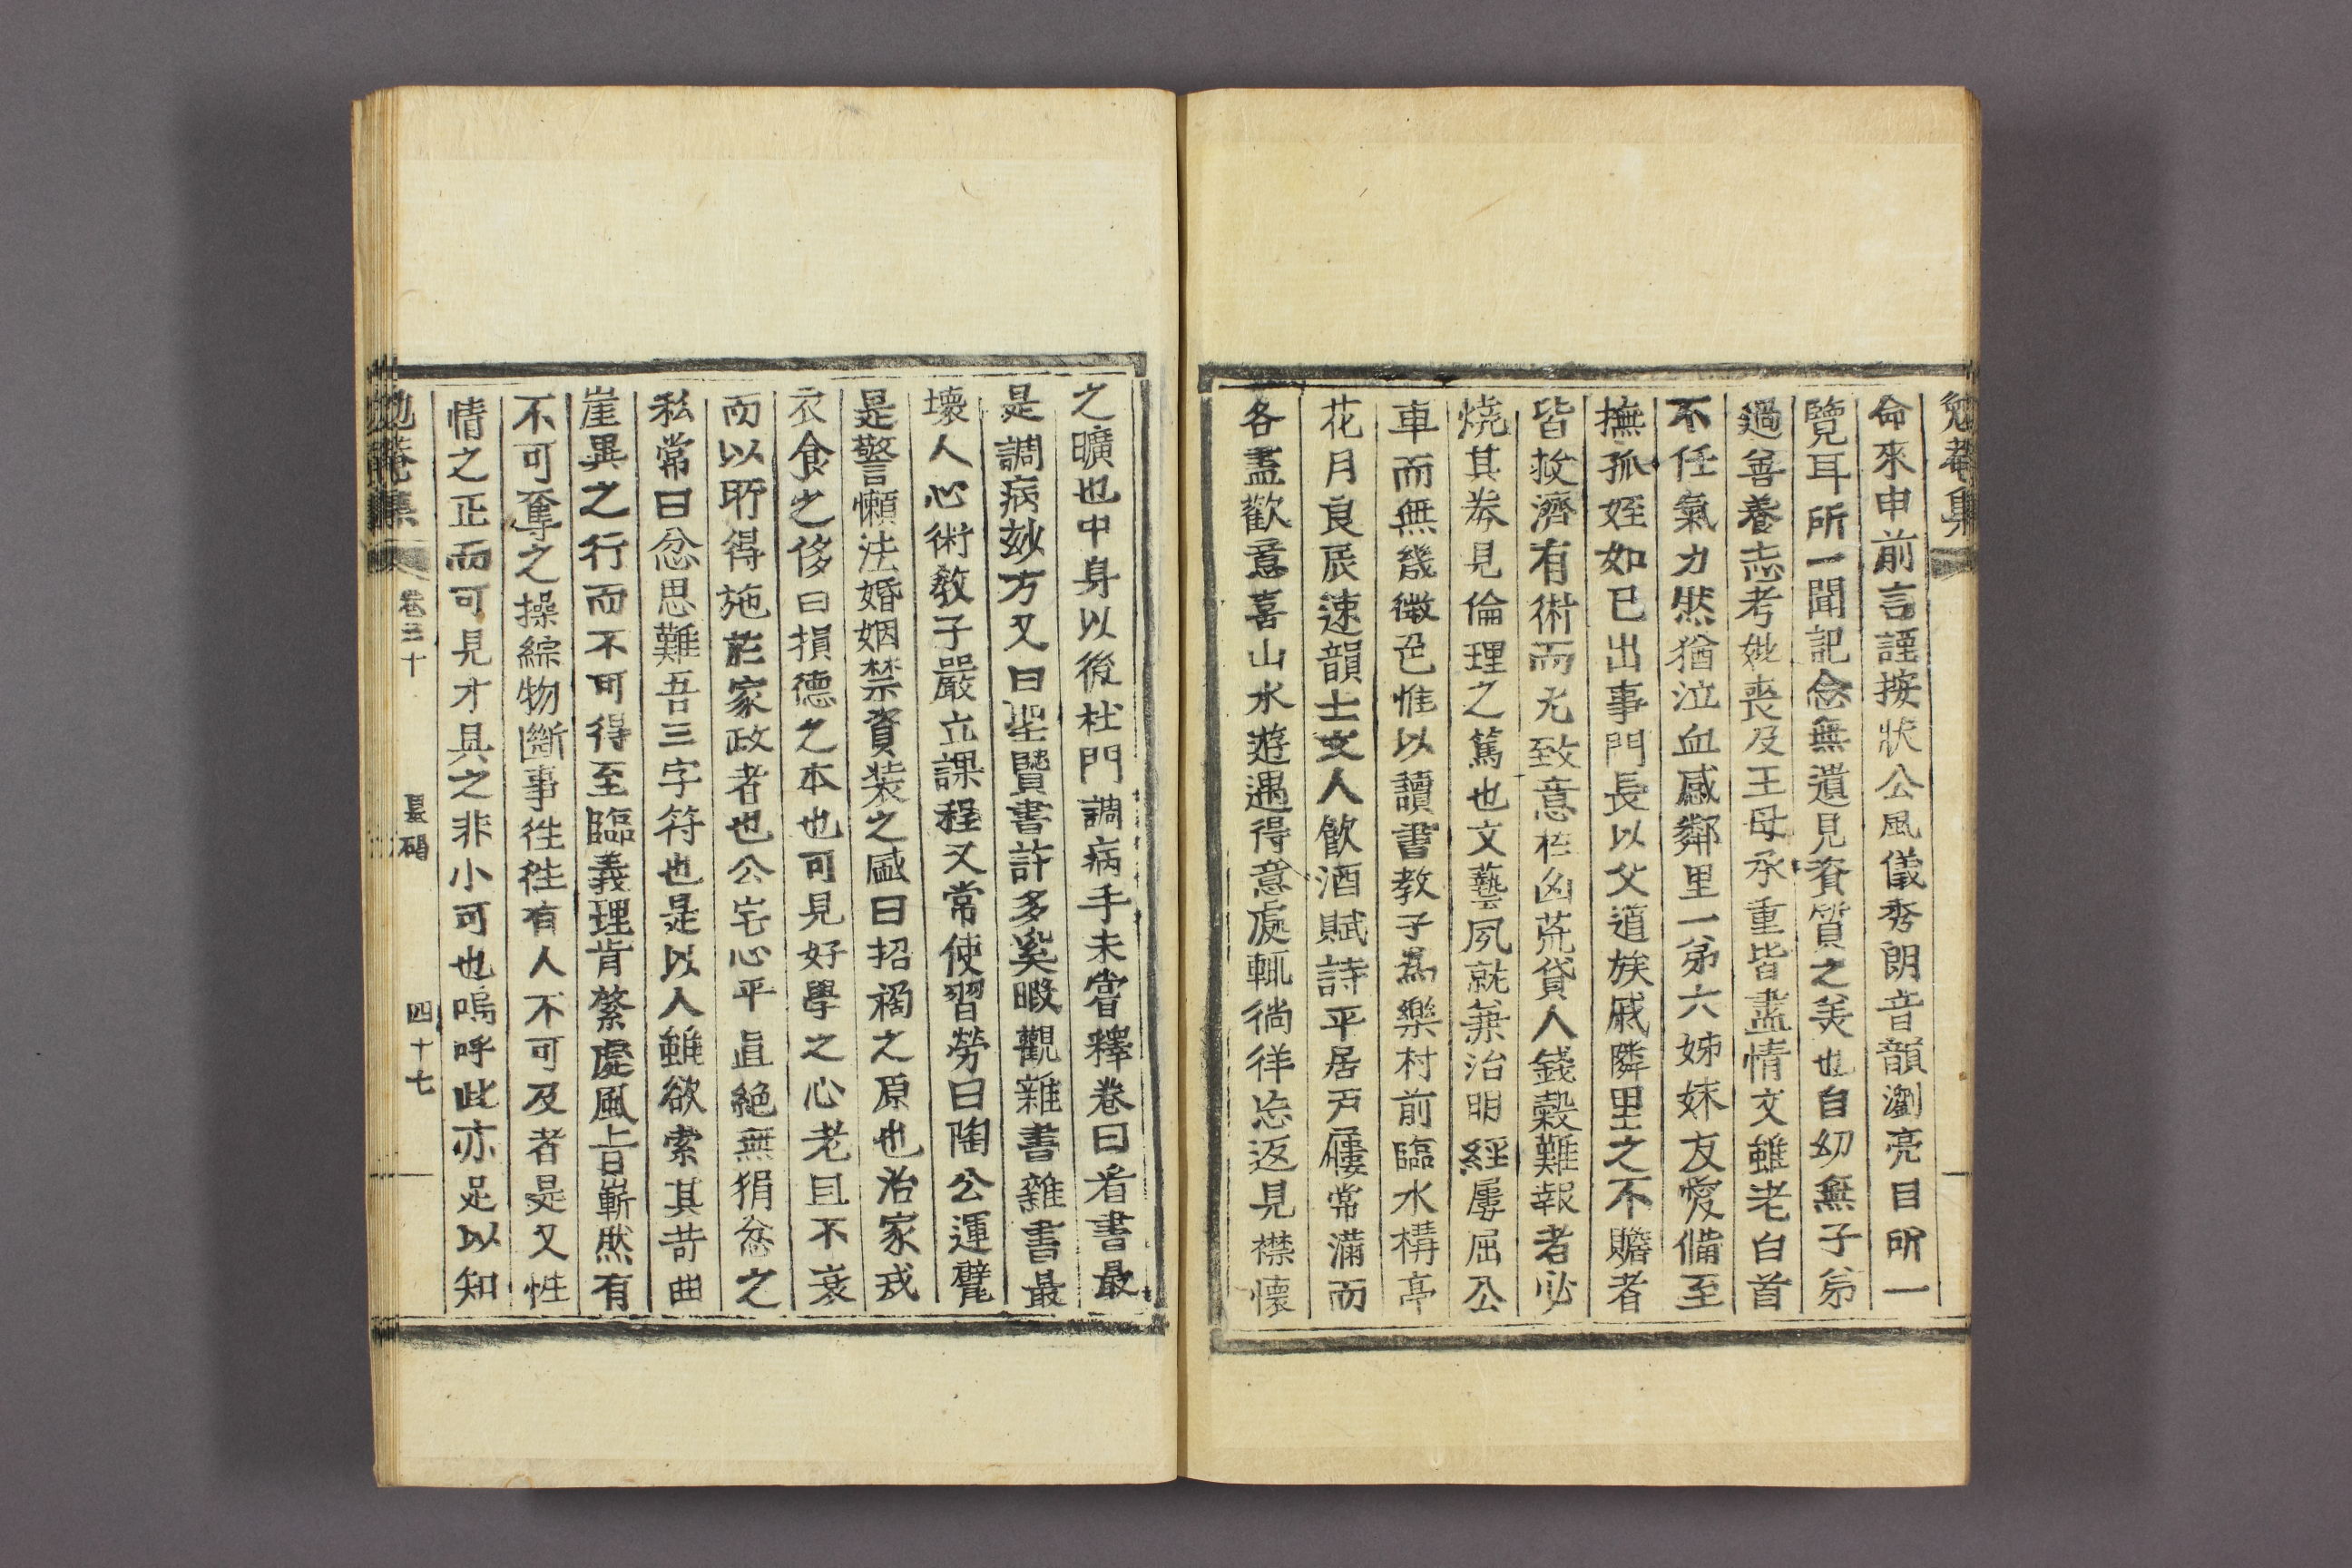 勉菴集
命來申前言謹按狀公風儀秀朗音韻瀏亮目所一
覽耳所一聞記念無遺見資質之美也自幼無子弟
過善養志考妣喪及王母承重皆盡情文雖老白首
不任氣力然猶泣血感鄰里一弟六姊妹友愛備至
撫孤姪如已出事門長以父道族戚隣里之不贍者
皆救濟有術而尤致意在凶荒貸人錢穀難報者必
燒其券見倫理之篤也文藝夙就兼治明經屢屈公
車而無幾微色惟以讀書教子爲樂村前臨水構亭
花月良辰速韻士文人飮酒賦詩平居戶屨常滿而
各盡歡意喜山水遊遇得意處輒徜徉忘返見襟懷
之曠也中身以後杜門調病手未嘗釋卷曰看書最
是調病玅方又曰聖賢書許多奚暇觀雜書雜書最
壞人心術敎子嚴立課程又常使習勞曰陶公運甓
是警懶法婚姻禁資裝之盛曰招禍之原也治家戒
衣食之侈曰損德之本也可見好學之心老且不衰
而以所得施於家政者也公宅心平直絶無狷忿之
私常曰忿思難吾三字符也是以人雖欲索其苛曲
崖異之行而不可得至臨義理肯綮處風旨嶄然有
不可奪之操綜物斷事徃徃有人不可及者是又性
情之正而可見才具之非小可也嗚呼此亦足以知
勉菴集 卷三十 墓碣 四十七